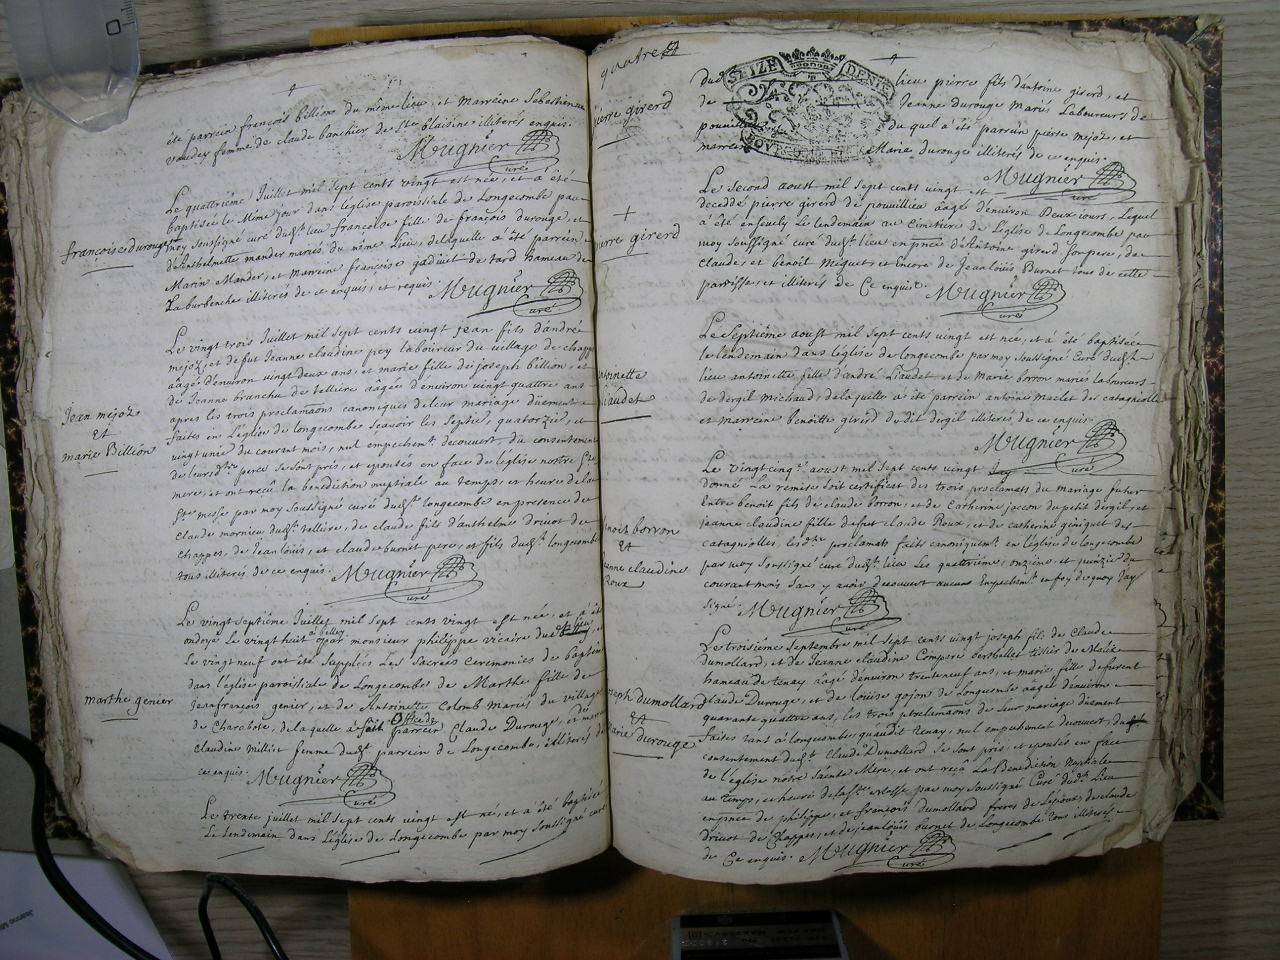 été parrein françois billion du même lieu, et Marreine Sebastienne
vaudey femme de claude banchier de Ste blaisine illiterés enquis.
Mugnier
curé
françoise durouge
Le quatriéme Juillet mil sept cents vingt est née, et a été
baptisée le Même jour dans l'eglise paroissiale de Longecombe par
moy soussigné curé dudt lieu francoise fille de françois durouge, et
d'Anthelmette mander mariés du même Lieu, de laquelle a été parrein
Marin Mander, et Marreine françoise gaduet de tard hameau de
La burbanche illiterés de ce enquis, et requis. Mugnier
curé
Jean mejoz
Et
marie Billion
Le vingt trois Juillet mil sept cents vingt jean fils d'andré
mejoz, et de fut Jeanne claudine pey laboureur du village de chappe
aâgé d'environ vingt deux ans, et marie fille de joseph billion, et
de Jeanne branche de telliere aâgée d'environ vingt quattre ans
apres les trois proclamaõns canoniques de leur mariage düement
faites en l'eglise de longecombe scavoir les septié, quatorzié, et
vingt unié du courant mois, nul empechemt decouvert, du consentement
de leurs dts peres se sont pris, et epousés en face de l'eglise notre Ste
mere, et ont reçu la benediction nuptiale au temps, et heure de la
Ste messe par moy soussigné curé dudt longecombe en presence de
claude mornieu dudt tellière, de claude fils d'anthelme drivot de
chappes, de Jean loüis, et claude burnet pere, et fils dudt longecombe
tous illiterés de ce enquis. Mugnier
curé
marthe genier
Le vingt septiéme Juillet mil sept cents vingt est née, et a été
ondoyé le vingt huit a belley par monsieur philippe vicaire du
Le vingt neuf ont été Supplées Les Sacrées Ceremonies de baptem
dans l'église paroissiale de Longecombe de Marthe fille de
Jeanfrancois genier, et de Antoinette Colomb mariés du village
de Charabote, de laquelle a fait Office de parrein Claude Durouge, et mare
Claudine Milliet femme dudt parrein de Longecombe, illiterés de
ce enquis. Mugnier
curé
Le trente juillet mil sept cents vingt est né, et a été baptisé
Le Lendemain dans L'eglise de Longecombe par moy soussigné curé
quatre
pierre girerd
dudt lieu pierre fils d'antoine girerd, et
de Jeanne durouge Mariés Laboureurs, de
du quel a été parrein pierre mejoz, et
marreine Marie durouge illiterés de ce enquis.
SEIZE DENIE
Mugnier
curé
pierre girerd
Le Second aoust mil sept cents vingt est
decedé pierre girerd de pouvillieu aagé d'environ Deux jours, Lequel
a été ensevely le lendemain au Cimitiere de L'eglise de Longecombe par
moy soussigné curé dudt lieu en pñce d'Antoine girerd son pere, de
claude, et benoit Miguet, et Encore de Jeanloüis Burnet tous de cette
parroisse, et illiterés de Ce enquis. Mugnier
curé
antoinette
Liaudet
Le Septiéme aoust mil sept cents vingt est née, et a été baptisée
le lendemain dans l'eglise de longecombe par moy soussigné Curé dudt
lieu antoinette fille d'andré Liaudet, et de Marie borron mariés laboureurs
de dergil Michaud, de laquelle a été parrein antoine maclet des catagniolles
et marreine benoitte girerd du dit dergil illiterés de ce enquis
Mugnier
Curé
benoit borron
Et
Jeanne claudine
Roux
Le vingt cinqe aoust mil Sept cents vingt Jay
donné La remise soit certificat des trois proclamats du mariage futur
Entre benoit fils de claude borron, et de Catherine jacon du petit dergil, et
jeanne claudine fille de fut claude Roux, et de catherine giniquet des
catagniolles, lesdts proclamats faits canoniquemt en l'eglise de longecombe
par moy Soussigné curé dudt lieu Les quatriéme, onzieme, et quinzié du
courant mois Sans y avoir decouvert aucuns Empechemt en foy de quoy Jay
signé. Mugnier
Curé
joseph dumollard
Et
marie durouge
Le troisiéme Septembre mil Sept cents vingt joseph fils de Claude
dumollard, et de Jeanne claudine Comperé
hameau de tenay aagé d'environ trenteneuf ans, et marie fille de furent
Claude Durouge, et de Louise gojon de Longecombe aagée d'environ
quarante quattre ans, les trois proclamaõns de Leur mariage dûement
faites tant a longecombe, qu'audit tenay, nul empechement decouvert, du
consentement dudt claude Dumollard se sont pris, et epousés en face
de l'eglise notre Sainte Mere, et ont reçu La Benediction Nuptiale
au temps, et heure de la Ste Messe par moy soussigné Curé dudt Lieu
en pñce de philippe, et françois Dumollard freres de L'epoux, de claude
drivot de Chappes, et de jeanloüis burnet de Longecombe Tous illiterés
de Ce enquis. Mugnier
curé